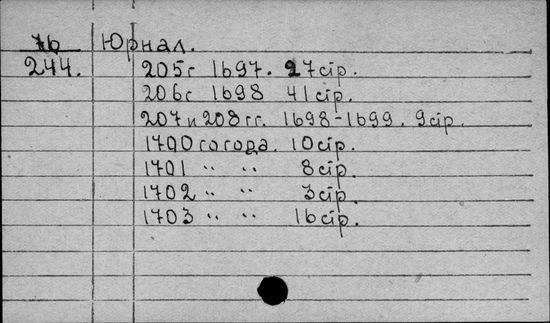 76 Юрнал.
244. 205г 1697. 27стр.
206г 1698 41стр.
207 и 208 гг. 1698-1699. 9стр.
1700 го года. 10стр.
1701 " " 8стр.
1702 " " 3стр.
1703 " " 16стр.